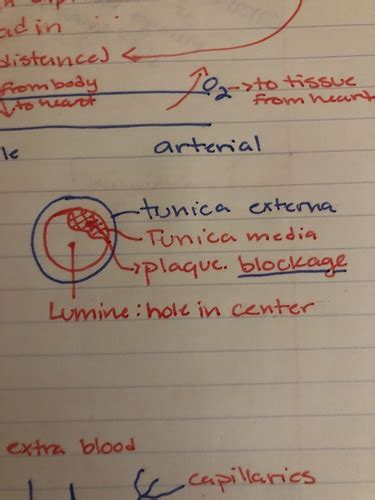 ad in
distance)
from body
to heart
O2 -> to tissue
from heart
le
arterial
tunica externa
Tunica media
plaque. blockage
Lumine: hole in center
extra blood
capillaries